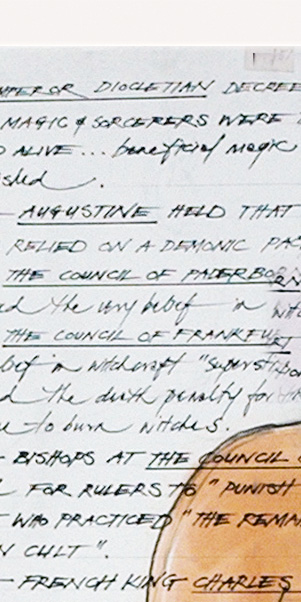 EMPEROR DIOCLETIAN DECREE
MAGIC & SORCERERS WERE
ALIVE... beneficial magic
ished.
- AUGUSTINE HELD THAT
RELIED ON A DEMONIC PAC
THE COUNCIL OF PADERBORN
ed the very belief in witc
THE COUNCIL OF FRANKFURT
lief in witchcraft "superst
d the death penalty for
e to burn witches.
- BISHOPS AT THE COUNCIL
FOR RULERS TO "PUNISH
WHO PRACTICED "THE REMA
N CULT".
- FRENCH KING CHARLES